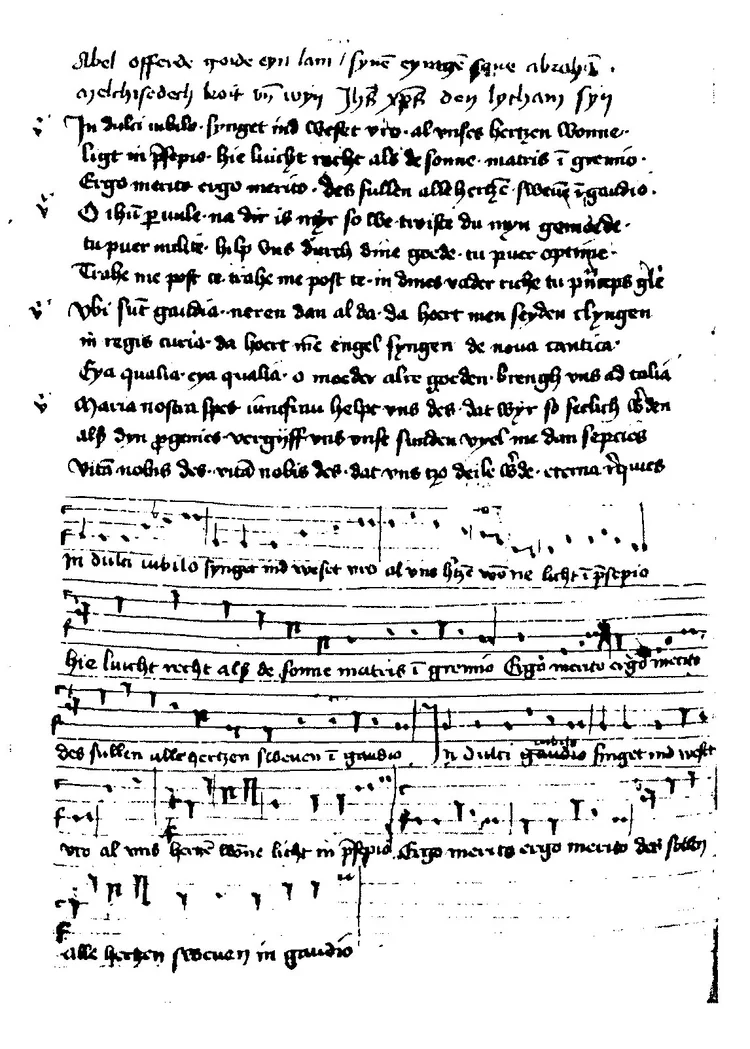 Abel offerde goide eyn lam / synē eyngē sone abrahā .
Melchisedech broit vn̄ wyn Jhs̄ xp̄s den lycham syn
In dulci iubilo · synget ind weset vro · al vnses hertzen wonne ·
ligt in p̄sepio · hie luicht recht als de sonne · matris ī gremio ·
Ergo merito ergo merito · des sullen alle hertzē · sweuē ī gaudio .
O ihū paruule · na dir is myr so we · troiste du myn gemoede ·
tu puer inclite · hilp vns durch dine goede · tu puer optime ·
Trahe me post te · trahe me post te · in dines vader riche tu
Vbi sūt gaudia · neren dan al da · da hoert men seyden clyngen
in regis curia · da hoert mē engel syngen de noua cantica ·
Eya qualia · eya qualia · o moeder alre goeden · brengh vns ad talia
Maria nostra spes iuncfrau helpt vns des · dat wyr so selich
als dyn · vergyff vns vnse sunden vyel me dan sepcies
Vitā nobis des · vitā nobis des · dat vns tzo deile · eterna
In dulci iubilo synget ind weset vro al vns wōne licht ī p̄sepio
hie luicht recht als de sonne matris ī gremio Ergo merito ergo merito
des sullen alle hertzen sweuen ī gaudio In dulci gaudio iubilo singet ind weset
vro al vnis hertzē wōne licht in p̄sepio Ergo merito ergo merito des sollen
alle hertzen sweuen in gaudio